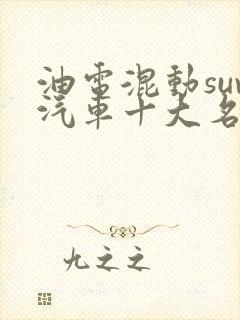 油電混動suv
汽車十大名
九之之